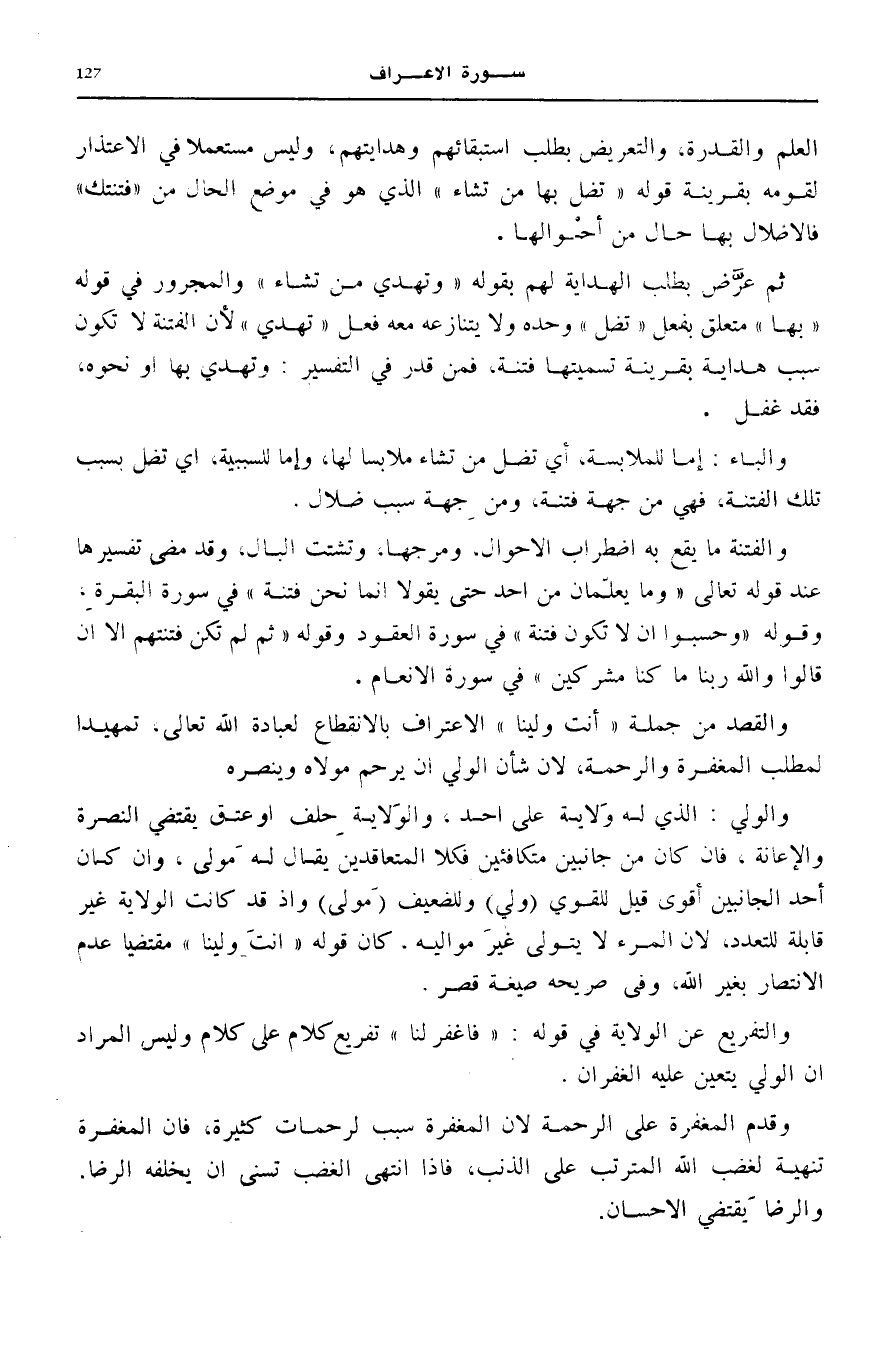 سورة الاعراف 127
العلم والقدرة، والتعريض بطلب استبقائهم وهدايتهم، وليس مستعملا في الاعتذار
لقومه بقرينة قوله « تضل بها من تشاء » الذي هو في موضع الحال من «فتنتك»
فالاضلال بها حال من أحوالها .
ثم عرّض بطلب الهداية لهم بقوله « وتهدي من تشاء » والمجرور في قوله
« بها » متعلق بفعل « تضل » وحده ولا يتنازعه معه فعل « تهدي » لأن الفتنة لا تكون
سبب هداية بقرينة تسميتها فتنة، فمن قدر في التفسير : وتهدي بها او نحوه،
فقد غفل .
والباء : إما للملابسة، أي تضل من تشاء ملابسا لها، وإما للسببية، اي تضل بسبب
تلك الفتنة، فهي من جهة فتنة، ومن جهة سبب ضلال .
والفتنة ما يقع به اضطراب الاحوال. ومرجها، وتشتت البال، وقد مضى تفسيرها
عند قوله تعالى « وما يعلّمان من احد حتى يقولا انما نحن فتنة » في سورة البقرة ،
وقوله «وحسبوا ان لا تكون فتنة » في سورة العقود وقوله « ثم لم تكن فتنتهم الا ان
قالوا والله ربنا ما كنا مشركين » في سورة الانعام .
والقصد من جملة « أنت ولينا » الاعتراف بالانقطاع لعبادة الله تعالى، تمهيدا
لمطلب المغفرة والرحمة، لان شأن الولي ان يرحم مولاه وينصره
والولي : الذي له وَلاية على احد ، والوَلاية حلف او عتق يقتضي النصرة
والإعانة ، فان كان من جانبين متكافئين فكلا المتعاقدين يقال له مَولى ، وان كان
أحد الجانبين أقوى قيل للقوي (ولي) وللضعيف (مَولى) واذ قد كانت الولاية غير
قابلة للتعدد، لان المرء لا يتولى غيرَ مواليه . كان قوله « انتَ ولينا » مقتضيا عدم
الانتصار بغير الله، وفى صريحه صيغة قصر .
والتفريع عن الولاية في قوله : « فاغفر لنا » تفريع كلام على كلام وليس المراد
ان الولي يتعين عليه الغفران .
وقدم المغفرة على الرحمة لان المغفرة سبب لرحمات كثيرة، فان المغفرة
تنهية لغضب الله المترتب على الذنب، فاذا انتهى الغضب تسنى ان يخلفه الرضا.
والرضا يَقتضي الاحسان.